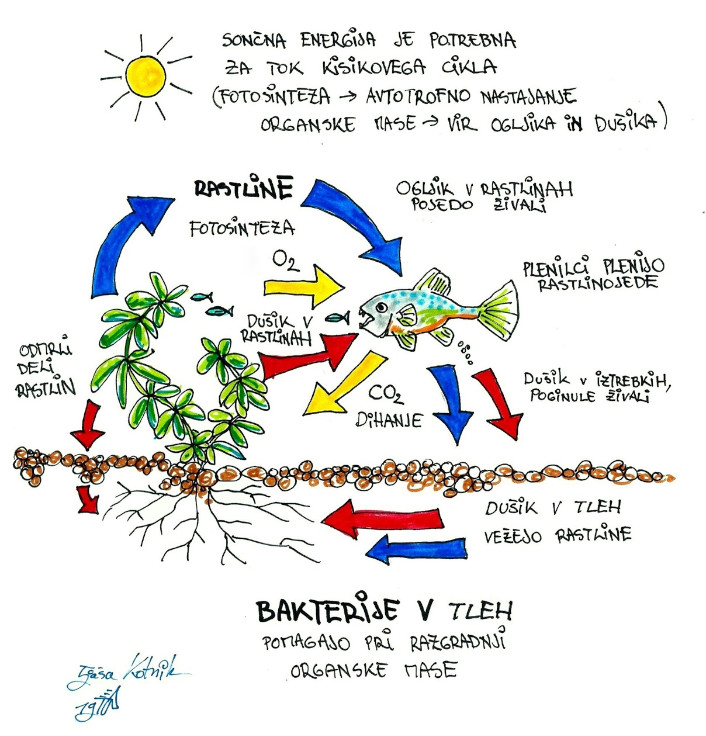 SONČNA ENERGIJA JE POTREBNA
ZA TOK KISIKOVEGA CIKLA
(FOTOSINTEZA → AVTOTROFNO NASTAJANJE
ORGANSKE MASE → VIR OGLJIKA IN DUŠIKA)
RASTLINE
FOTOSINTEZA
OGLJIK V RASTLINAH
POJEDO ŽIVALI
O2
PLENILCI PLENIJO
RASTLINOJEDE
DUŠIK V
RASTLINAH
ODMRLI
DELI
RASTLIN
CO2
DIHANJE
DUŠIK V IZTREBKIH,
POGINULE ŽIVALI
DUŠIK V TLEH
VEŽEJO RASTLINE
BAKTERIJE V TLEH
POMAGAJO PRI RAZGRADNJI
ORGANSKE MASE
Kotnik